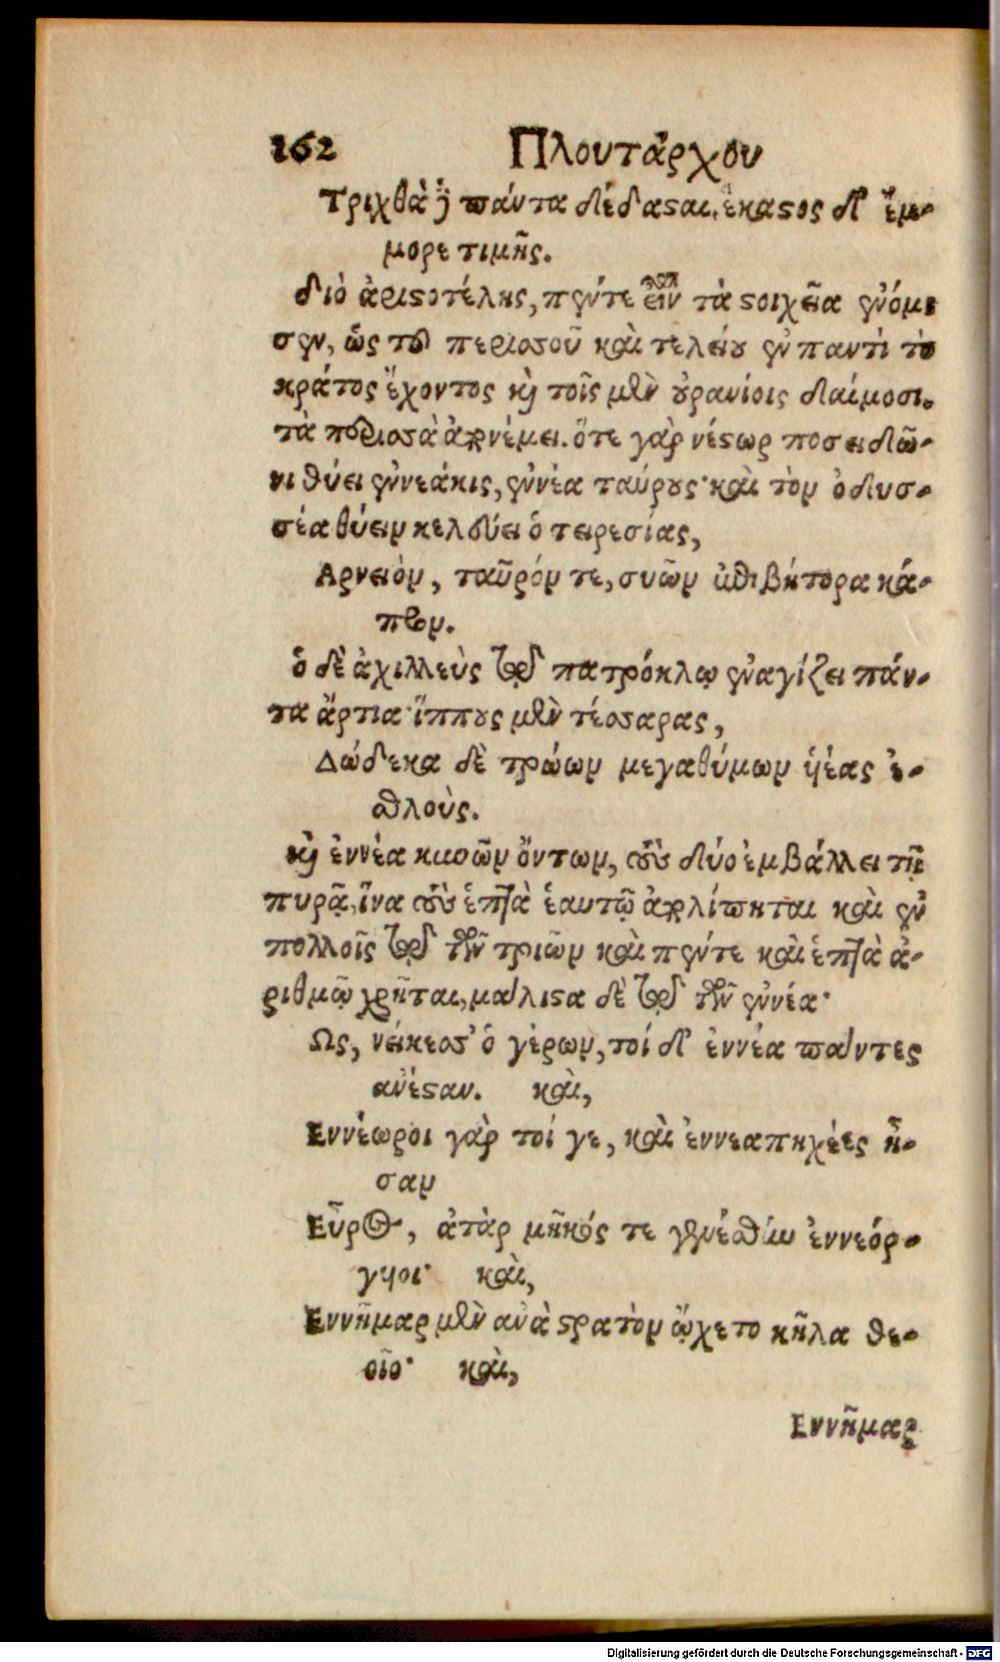 162 Πλουτάρχου
Τριχθὰ δὲ πάντα δέδασαι, ἕκαστος δ' ἔμ-
μορε τιμῆς.
διὸ ἀριστοτέλης, πέντε εἶναι τὰ στοιχεῖα ἐνόμι
σεν, ὡς τοῦ περισσοῦ καὶ τελείου ἐν παντὶ τὸ
κράτος ἔχοντος καὶ τοῖς μὲν οὐρανίοις δαίμοσι.
τὰ περισσὰ ἀπονέμει. ὅτε γὰρ νέστωρ ποσειδῶ-
νι θύει ἐννεάκις, ἐννέα ταύρους· καὶ τὸν ὀδυσ-
σέα θύειν κελεύει ὁ τειρεσίας,
Αρνειὸν, ταῦρόν τε, συῶν ἐπιβήτορα κά-
προν.
ὁ δὲ ἀχιλλεὺς τῷ πατρόκλῳ ἐναγίζει πάν-
τα ἄρτια· ἵππους μὲν τέσσαρας,
Δώδεκα δὲ τρώων μεγαθύμων ὑέας ἐ-
σθλούς.
καὶ ἐννέα κυνῶν ὄντων, τοὺς δύο ἐμβάλλει τῇ
πυρᾷ, ἵνα τοὺς ἑπτὰ ἑαυτῷ ἀπολίπηται καὶ ἐν
πολλοῖς τῷ τῶν τριῶν καὶ πέντε καὶ ἑπτὰ ἀ-
ριθμῷ χρῆται, μάλιστα δὲ τῷ τῶν ἐννέα·
Ως, νείκεσσ' ὁ γέρων, τοί δ' ἐννέα πάντες
ἀνέσταν. καὶ,
Εννέωροι γάρ τοί γε, καὶ ἐννεαπηχέες ἦ-
σαν
Εὖρος, ἀτὰρ μῆκός τε γενέσθην ἐννεόρ-
γυιοι· καὶ,
Εννῆμαρ μὲν ἀνὰ στρατὸν ᾤχετο κῆλα θε-
οῖο· καὶ,
Εννῆμαρ
Digitalisierung gefördert durch die Deutsche Forschungsgemeinschaft - DFG